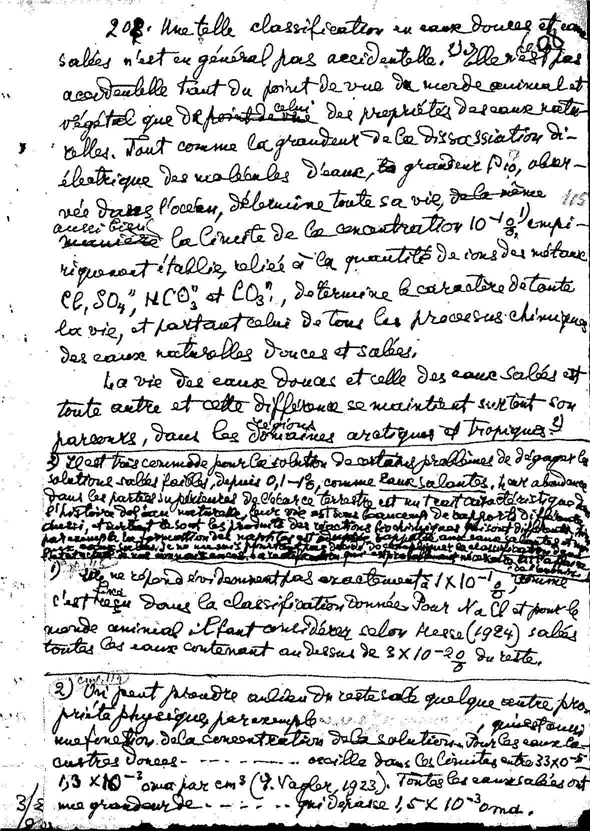 208. Une telle classification en eaux douces et eaux
salées n'est en général pas accidentelle. Elle n'est pas
accidentelle tant du point de vue du monde animal et
celui
végétal que du point de vie des propriétés des eaux natu-
relles. Tout comme la grandeur de la dissassiation di-
électrique des molécules d'eaux, la grandeur P10, obser-
vée dans l'océan, détermine toute sa vie, de la même 115
aussi bien
manière la limite de la concentration 10-1 % 1) empi-
riquement établie, reliée à la quantité de ions des métaux
Cl, SO4", HCO3" et CO3", détermine le caractère de toute
la vie, et partant celui de tous les processus chimiques
des eaux naturelles douces et salées.
La vie des eaux douces et celle des eaux salées est
toute autre et cette différence se maintient surtout son
régions
parcours, dans les domaines arctiques et tropiques. 2)
3) Il est très commode pour la solution de certains problèmes de dégager les
solutions salées faibles, depuis 0,1-1%, comme eaux salantes. Leur abondance
dans les parties supérieures de l'écorce terrestre est un trait caractéristique dans
l'histoire des eaux naturelles, leur vie est sous beaucoup de rapports différente
aussi, et surtout ce sont les produits des réactions biochimiques qui sont différents,
par exemple la formation des naphtes est
1) ne répond évidemment pas exactement à 1X10-1 %, comme
fixé
c'est reçu dans la classification donnée. Pour NaCl et pour le
monde animal il faut considérer selon Hesse (1924) salées
toutes les eaux contenant au dessus de 3X10-2 % du reste.
2) On peut prendre au lieu du reste salé quelque autre pro-
priété physique, par exemple , qui est aussi
une fonction de la concentration de la solution. Pour les eaux la-
custres douces - - - - - - - oscille dans les limites entre 33X10-5
1,3 X10-3 oma par cm3 (J. Vagler, 1923). Toutes les eaux salées ont
une grandeur de - - - - - - qui dépasse 1,5 X 10-3 oma.